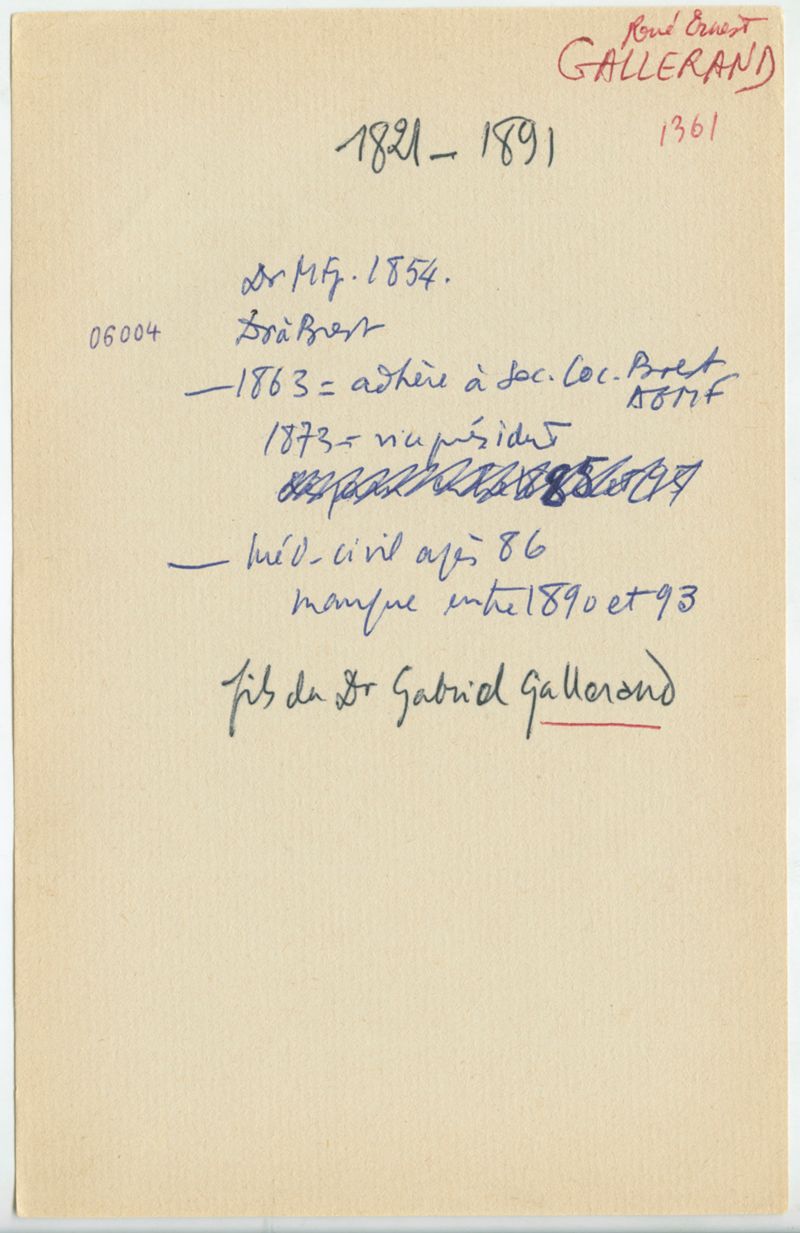 René Ernest
GALLERAND
1361
1821 – 1891
Dr MFj. 1854.
06004
Dr à Brest
— 1863 = adhère à Soc. Loc. Brest
AGMF
1873 = vice président
— Méd. civil après 86
manque entre 1890 et 93
fils du Dr Gabriel Gallerand